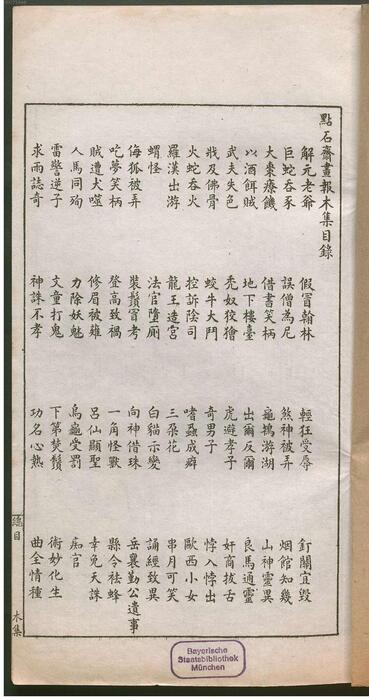 點石齋畫報木集目錄
解元老爺 假冒翰林 輕狂受辱 釘關宜毀
巨蛇吞豕 誤僧為尼 煞神被弄 烟館知幾
大棗療饑 借書笑柄 龜鴇游湖 山神靈異
以酒餌賊 地下樓臺 出爾反爾 良馬通靈
武夫失色 禿奴狡獪 虎避孝子 奸商拔舌
戕及佛骨 蛟牛大鬥 奇男子 悖入悖出
火蛇吞火 控訴陰司 嗜蝨成癖 歐西小女
羅漢出游 龍王造宮 三朵花 串月可笑
蝟怪 法官墮厠 白貓示變 誦經致異
侮狐被弄 裝鬚冒考 向神借珠 岳襄勤公遺事
吃夢笑柄 登高致禍 一角怪獸 縣令祛蜂
賊遭犬噬 修眉被薙 呂仙顯聖 幸免天誅
人馬同殉 力除妖魅 烏龜受罰 痴官
雷警逆子 文童打鬼 下第焚鬚 術妙化生
求雨誌奇 神誅不孝 功名心熱 曲全情種
總目 木集
Bayerische
Staatsbibliothek
München